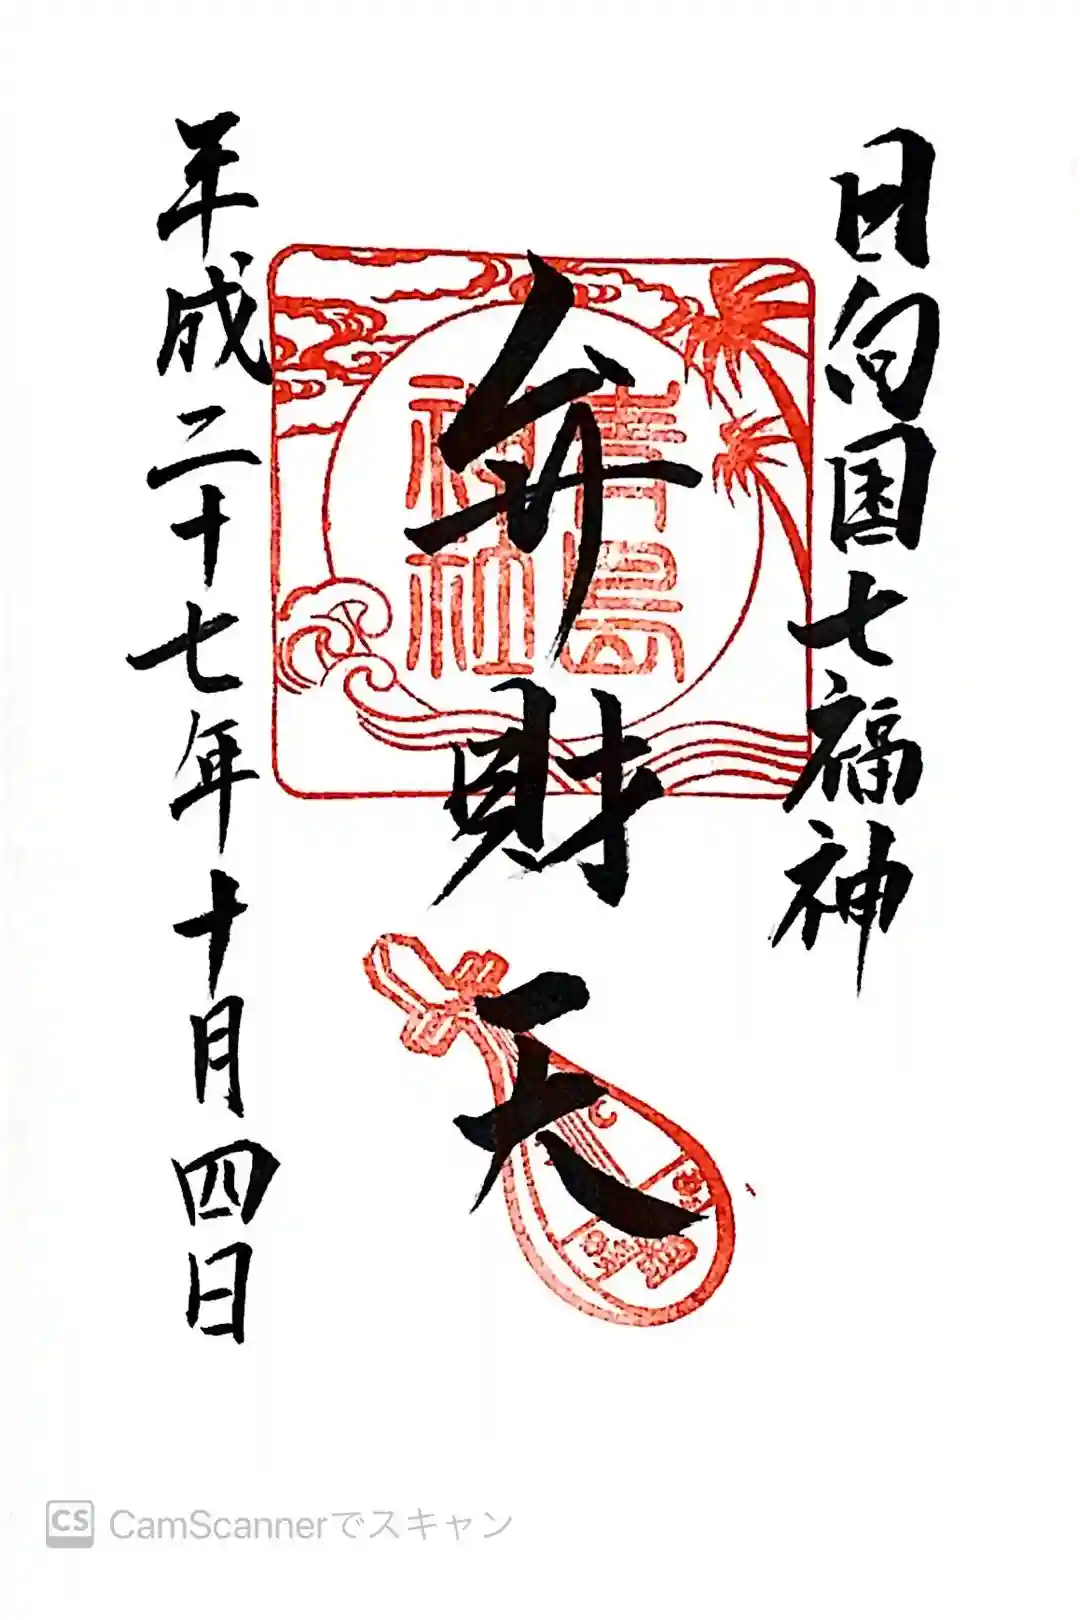 日向国七福神
弁財天
青島
神社
平成二十七年十月四日
CS CamScannerでスキャン